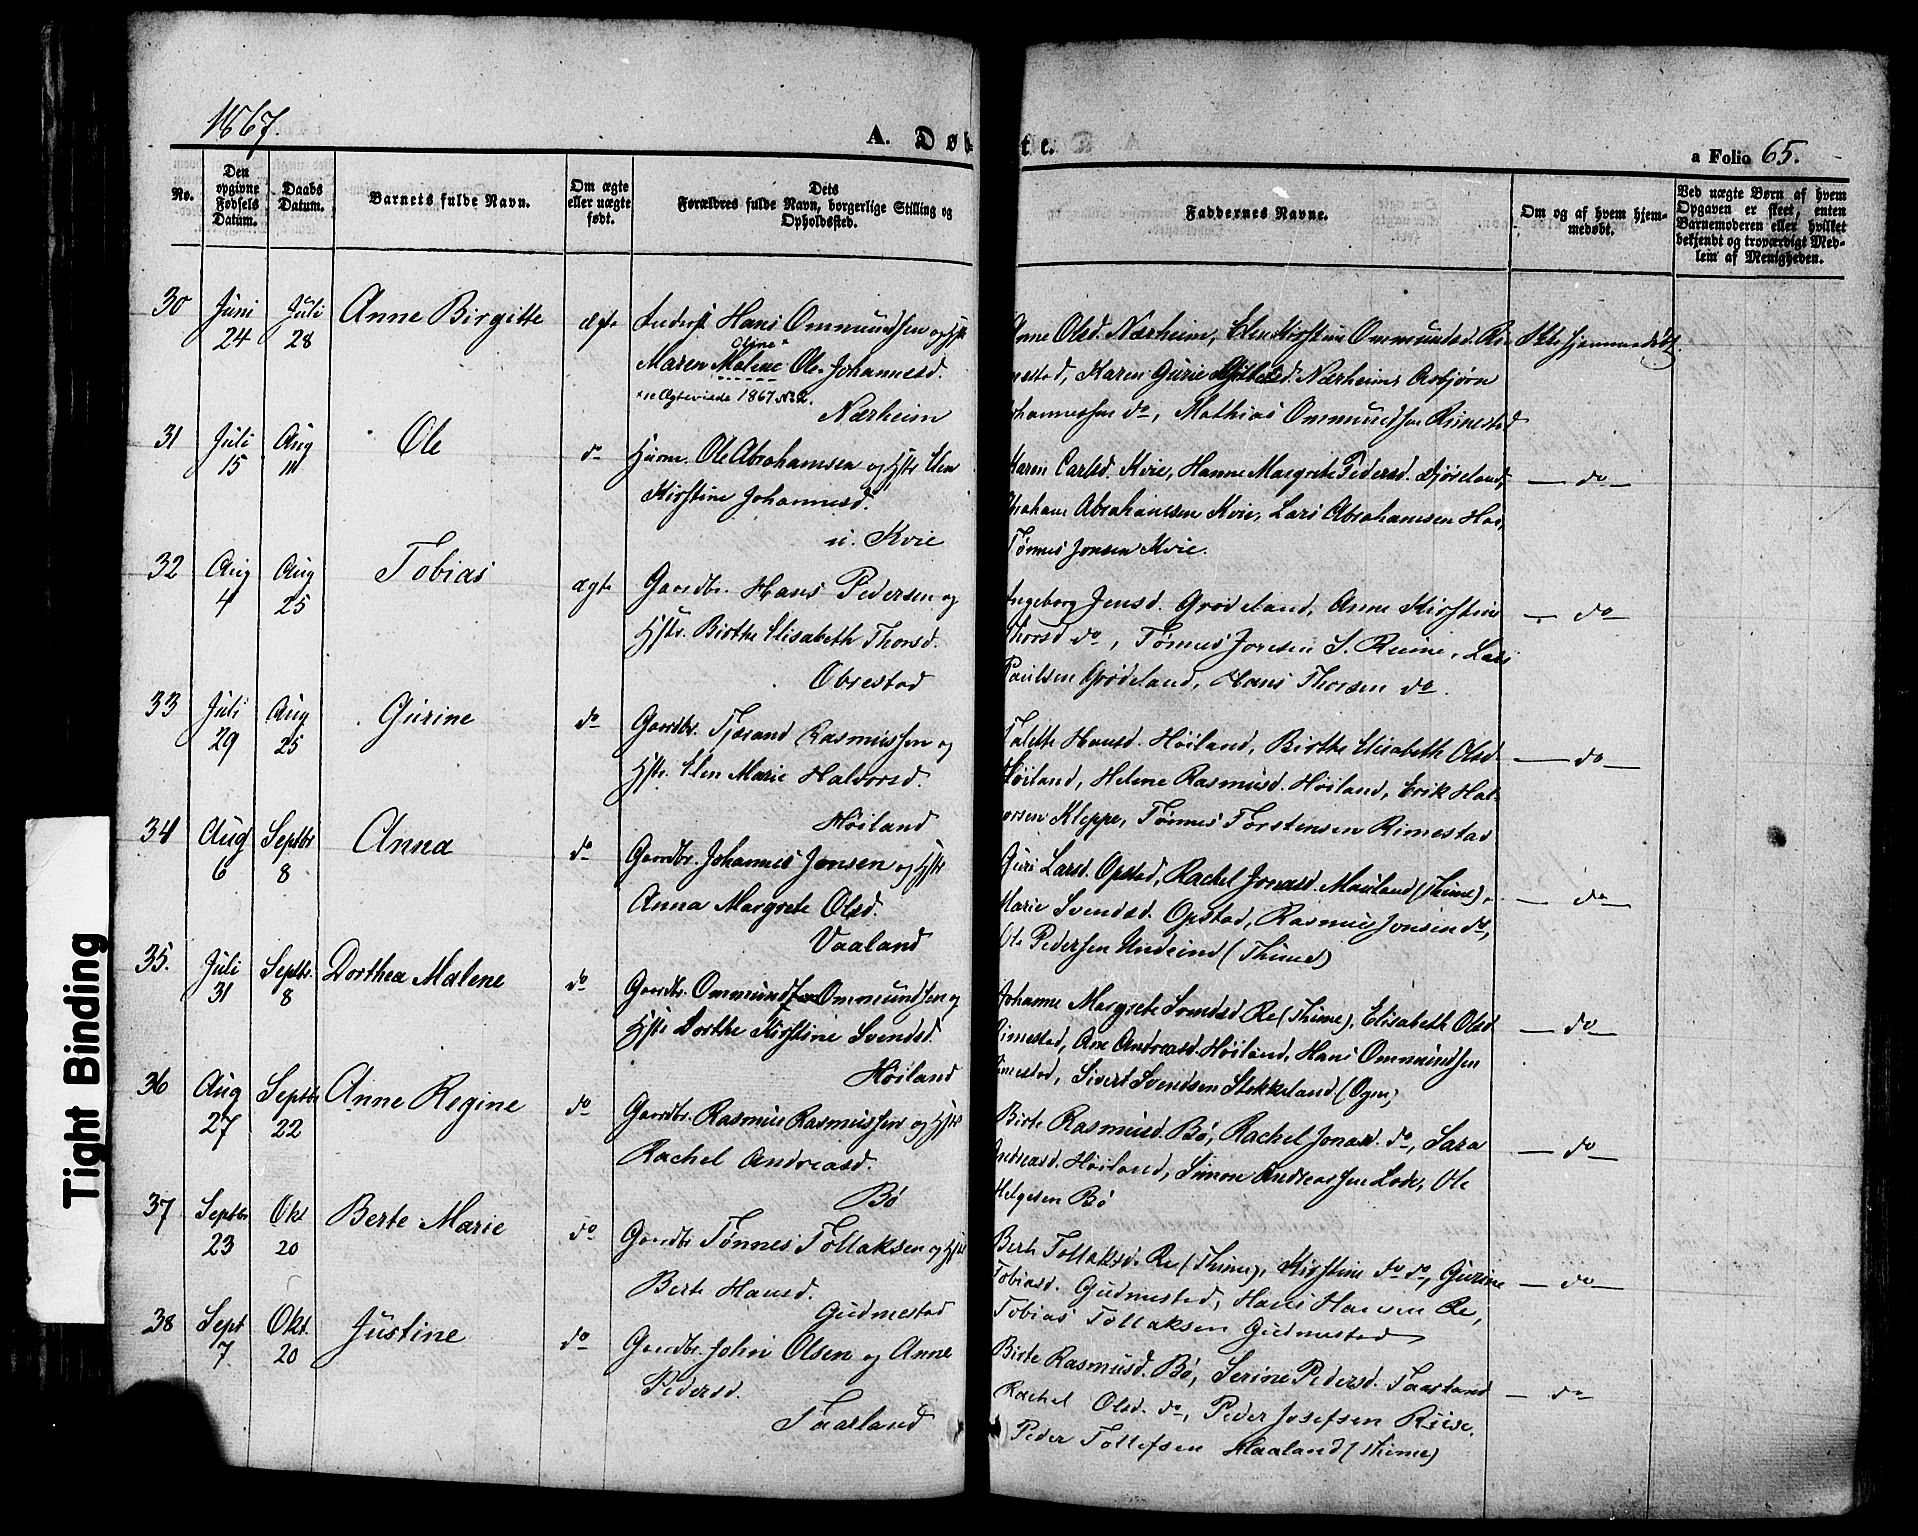 1867.
A. Døb
te.
a Folio 65.
No.
Den opgivne Fødsels Datum.
Daabs Datum.
Barnets fulde Navn.
Om ægte eller uægte født.
Dets Forældres fulde Navn, borgerlige Stilling og Opholdssted.
Faddernes Navne.
Om og af hvem hjemmedøbt.
Ved uægte Børn af hvem Opgaven er skeet, enten Barnemoderen eller hvilket bekjendt og troværdigt Medlem af Menigheden.
30 Juni 24 Juli 28 Anne Birgitte ægte
Inderst Hans Ommundsen og Hstr
Oline
Maren Malene Ole Johannesd.
Ægteviede 1867 No 2.
Nærheim
Anne Olsd. Nærheim, Elen Kirstine Ommundsd. Ri-
mestad, Karen Gurie Nærheim, Asbjørn
Johannessen do, Mathias Ommundsen Rimestad
Ikke hjemmedøbt.
31 Juli 15 Aug 11 Ole do
Huusm. Ole Abrahamsen og Hstr Elen
Kirstine Johannesd.
u. Kvie
Karen Carlsd. Kvie, Hanne Margrete Pedersd.
Abraham Abrahamsen Kvie, Lars Abrahamsen
Tønnes Jonsen Kvie.
do
32 Aug 4 Aug 25 Tobias ægte
Gaardbr. Hans Pedersen og
Hstr. Birthe Elisabeth Thorsd.
Obrestad
Ingeborg Jensd. Grødeland, Anne Kirstine
Thorsd do, Tønnes S. Reime, Lars
Paulsen Grødeland, Hans Thorsen do.
do
33 Juli 29 Aug 25 Gurine do
Gaardbr. Tjærand Rasmussen og
Hstr. Elen Marie Halvorsd.
Høiland
Talette Hansd. Høiland, Birthe Elisabeth Olsd
Høiland, Helene Rasmusd. Høiland, Erik Hal-
vorsen Kleppe, Tønnes Torstensen Rimestad
do
34 Aug 6 Septbr 8 Anna do
Gaardbr. Johannes Jonsen og Hstr
Anna Margrete Olsd.
Vaaland
Guri Larsd. Opstad, Rachel Jonasd. Mauland (Thime),
Marie Svendsd. Opstad, Rasmus Jonsen do,
Ole Pedersen Undeim (Thime)
do
35. Juli 31 Septbr. 8 Dorthea Malene do
Gaardbr. Ommund Ommundsen og
Hstr Dorthe Kirstine Svendsd.
Høiland
Johanne Margrete Svendsd Re (Thime), Elisabeth Olsd
Rimestad, Ane Andreasd. Høiland, Hans Ommundsen
Rimestad, Sivert Svendsen Stokkeland (Ogne)
do
36 Aug 27 Septbr 22 Anne Regine do
Gaardbr. Rasmus Rasmussen og Hstr
Rachel Andreasd.
Bø
Birte Rasmusd. Bø, Rachel Jonasd. do, Sara
Andreasd. Høiland, Simon Andreassen Lode, Ole
Helgesen Bø
do
37 Septbr 23 Okt 20 Berte Marie do
Gaardbr Tønnes Tollaksen og Hstr
Berte Hansd.
Gudmestad
Berte Tollaksd. Re (Thime), Kirstine do do, Gurine
Tobiasd. Gudmestad, Hans Hansen Re,
Tobias Tollaksen Gudmestad
do
38 Sept 7 Okt. 20 Justine do
Gaardbr. John Olsen og Anne
Pedersd.
Taarland
Birte Rasmusd. Bø, Serine Pedersd. Taarland
Rachel Olsd. do, Peder Josefsen Riise,
Peder Tollefsen Haaland (Thime)
do
Tight Binding